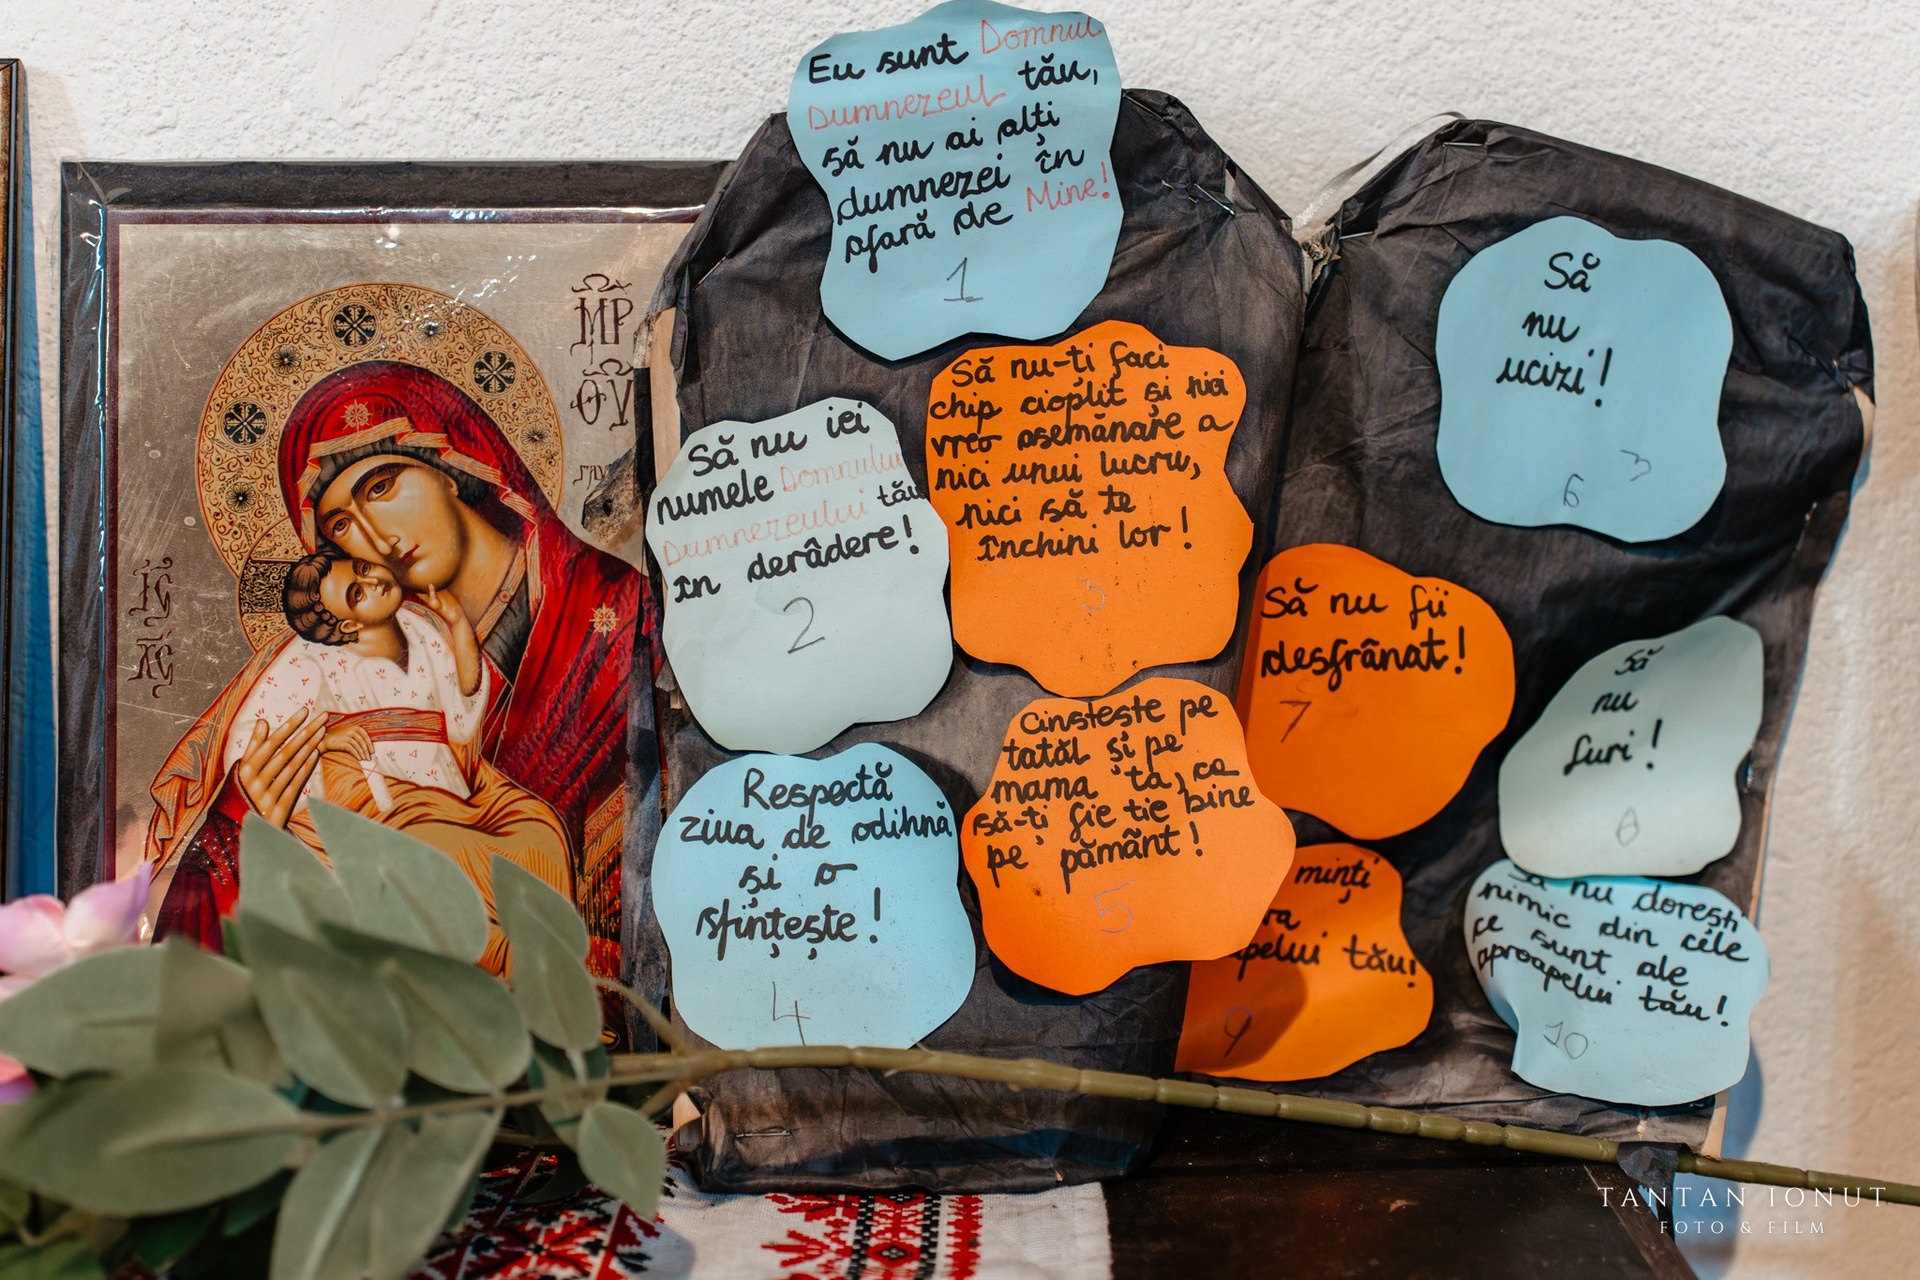 Eu sunt Domnul
Dumnezeul tău,
să nu ai alți
dumnezei în
afară de Mine!
1
Să nu iei
numele Domnului
Dumnezeului tău
în derâdere!
2
Să nu-ți faci
chip cioplit și nici
vreo asemănare a
nici unui lucru,
nici să te
închini lor!
3
Respectă
ziua de odihnă
și o
sfințește!
4
Cinstește pe
tatăl și pe
mama ta, ca
să-ți fie ție bine
pe pământ!
5
Să
nu
ucizi!
6
3
Să nu fii
desfrânat!
7
Să
nu
furi!
8
minți
pelui tău!
9
Să nu dorești
nimic din cele
ce sunt ale
aproapelui tău!
10
ΜΡ
ΘΥ
ΙΣ
ΧΣ
TANTAN IONUT
FOTO & FILM